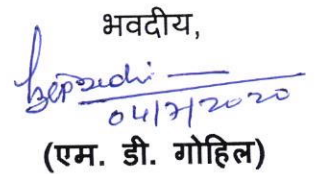 भवदीय,
04/7/2020
(एम. डी. गोहिल)